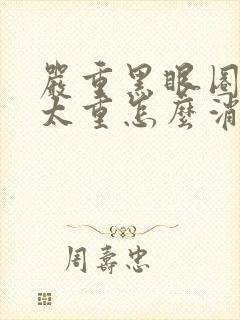 嚴重黑眼圈
太重怎麼消
周壽忠